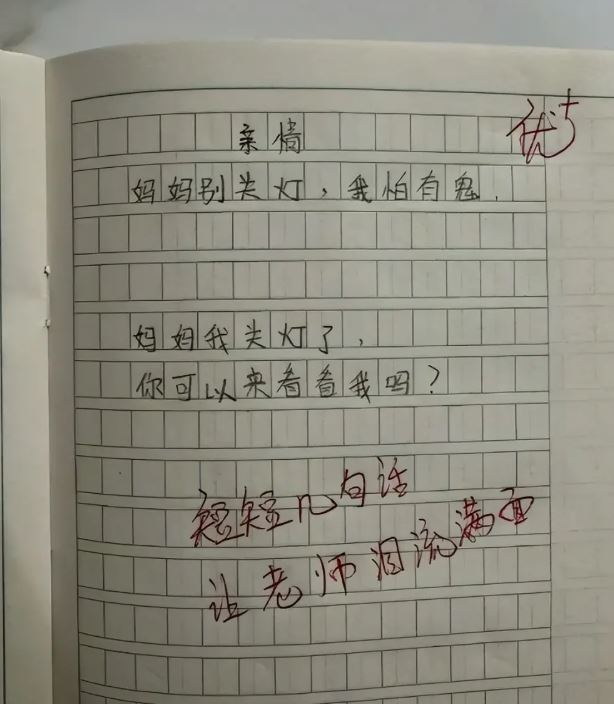 亲情
优+
妈妈别关灯，我怕有鬼.
妈妈我关灯了，
你可以来看看我吗？
短短几句话
让老师泪流满面